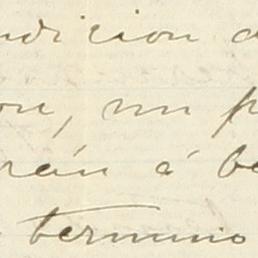 ndicion d
on, un p
rán á be
termino